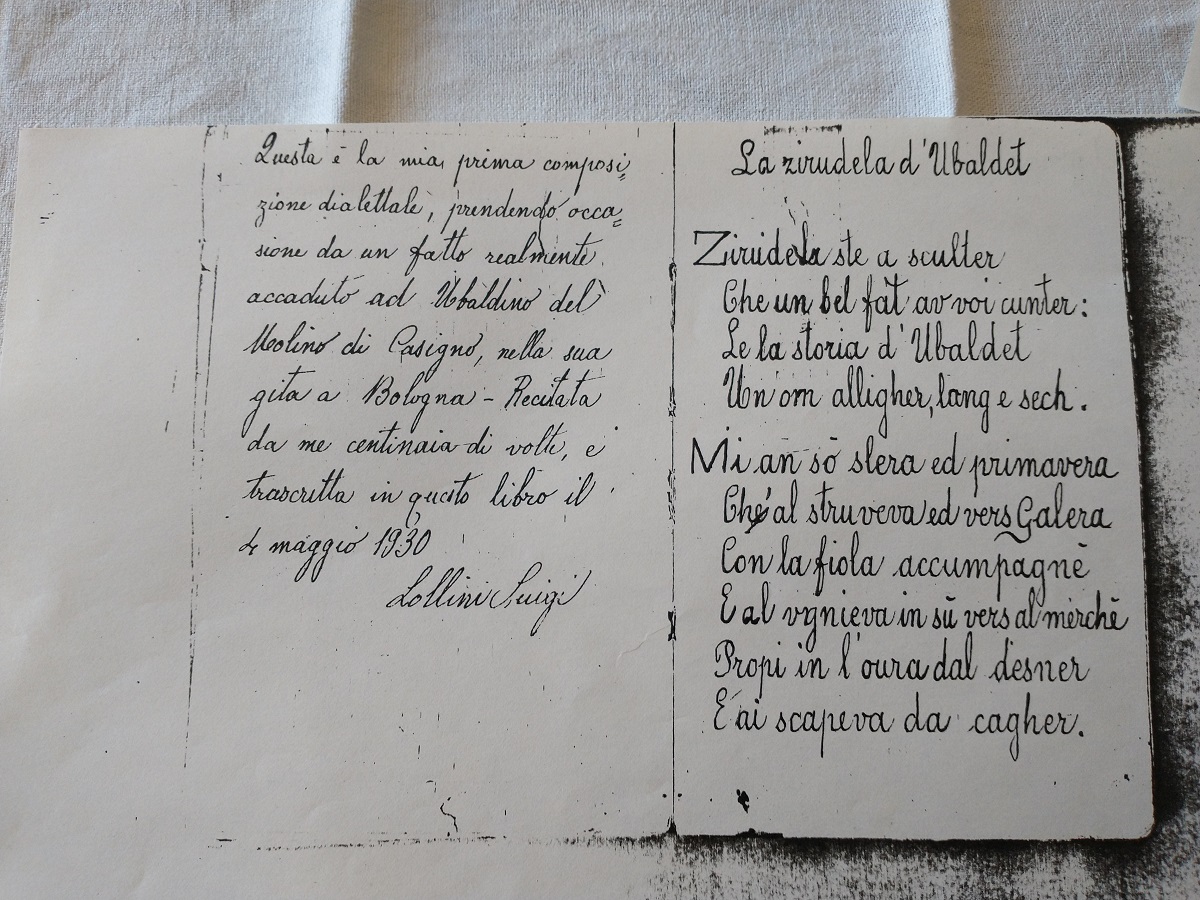 Questa è la mia prima composi=
zione dialettale, prendendo occa=
sione da un fatto realmente
accaduto ad Ubaldino del
Molino di Casigno, nella sua
gita a Bologna - Recitata
da me centinaia di volte, e
trascritta in questo libro il
4 maggio 1930
Lollini Luigi
La zirudela d'Ubaldet
Zirudela ste a sculter
Che un bel fat av voi cunter:
Le la storia d'Ubaldet
Un'om alligher, lang e sech.
Mi an sò slera ed primavera
Ché al struveva ed vers Galera
Con la fiola accumpagnè
E al vgnieva in sù vers al merchè
Propi in l'oura dal desner
E ai scapeva da cagher.